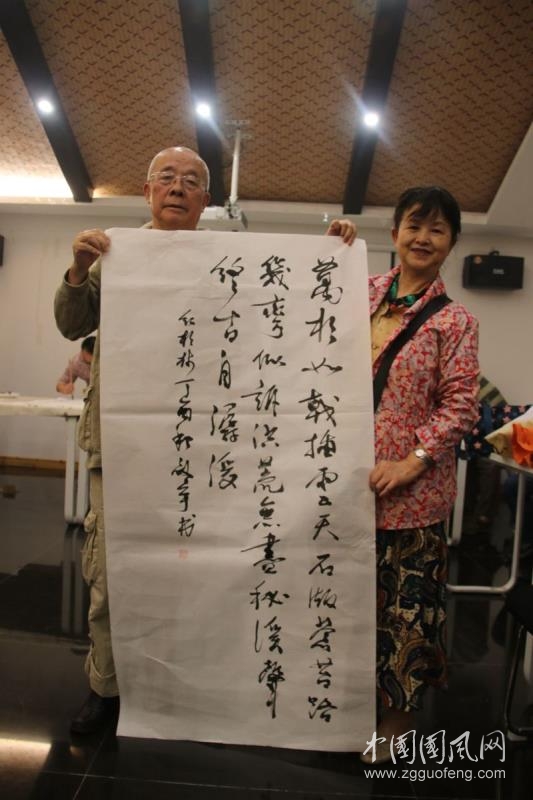 萬杉如戟插雲天石蒼苔路
幾彎似訴洪荒無盡秘溪聲
終古自潺湲
紅杉林丁酉秋書
中國國風网
www.zgguofeng.com